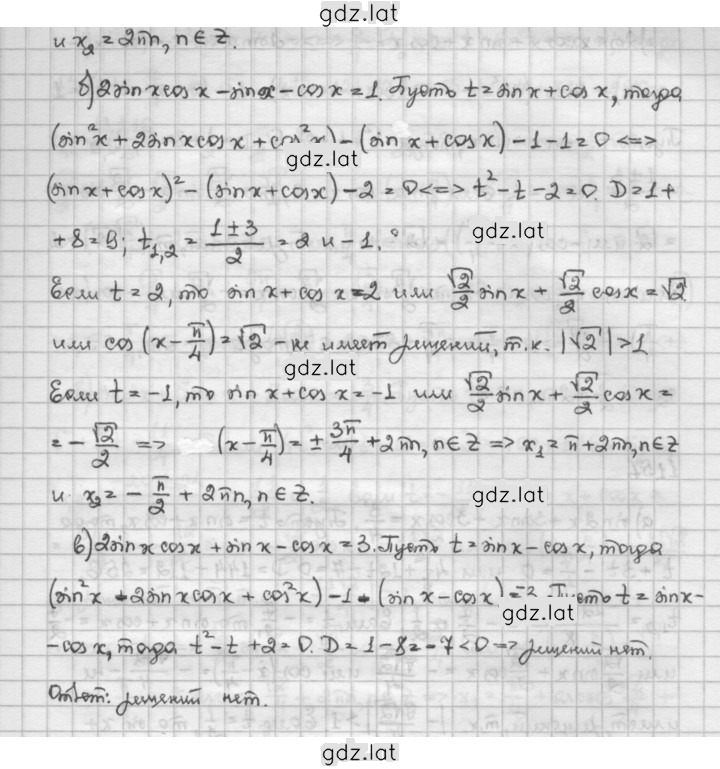 gdz.lat
и x₂ = 2πn, n ∈ Z.
б) 2sin x cos x − sin x − cos x = 1. Пусть t = sin x + cos x, тогда
(sin²x + 2sin x cos x + cos²x) − (sin x + cos x) − 1 − 1 = 0 <=>
gdz.lat
(sin x + cos x)² − (sin x + cos x) − 2 = 0 <=> t² − t − 2 = 0. D = 1 +
+ 8 = 9; t₁,₂ = (1 ± 3)/2 = 2 и −1.
gdz.lat
Если t = 2, то sin x + cos x = 2 или √2/2 sin x + √2/2 cos x = √2
или cos (x − π/4) = √2 – не имеет решений, т.к. |√2| > 1
gdz.lat
Если t = −1, то sin x + cos x = −1 или √2/2 sin x + √2/2 cos x =
= −√2/2 => (x − π/4) = ± 3π/4 + 2πn, n ∈ Z => x₁ = π + 2πn, n ∈ Z
и x₂ = −π/2 + 2πn, n ∈ Z.
gdz.lat
в) 2sin x cos x + sin x − cos x = 3. Пусть t = sin x − cos x, тогда
(sin²x − 2sin x cos x + cos²x) − 1 − (sin x − cos x) = −3. Пусть t = sin x −
gdz.lat
− cos x, тогда t² − t + 2 = 0. D = 1 − 8 = −7 < 0 => решений нет.
Ответ: решений нет.
gdz.lat